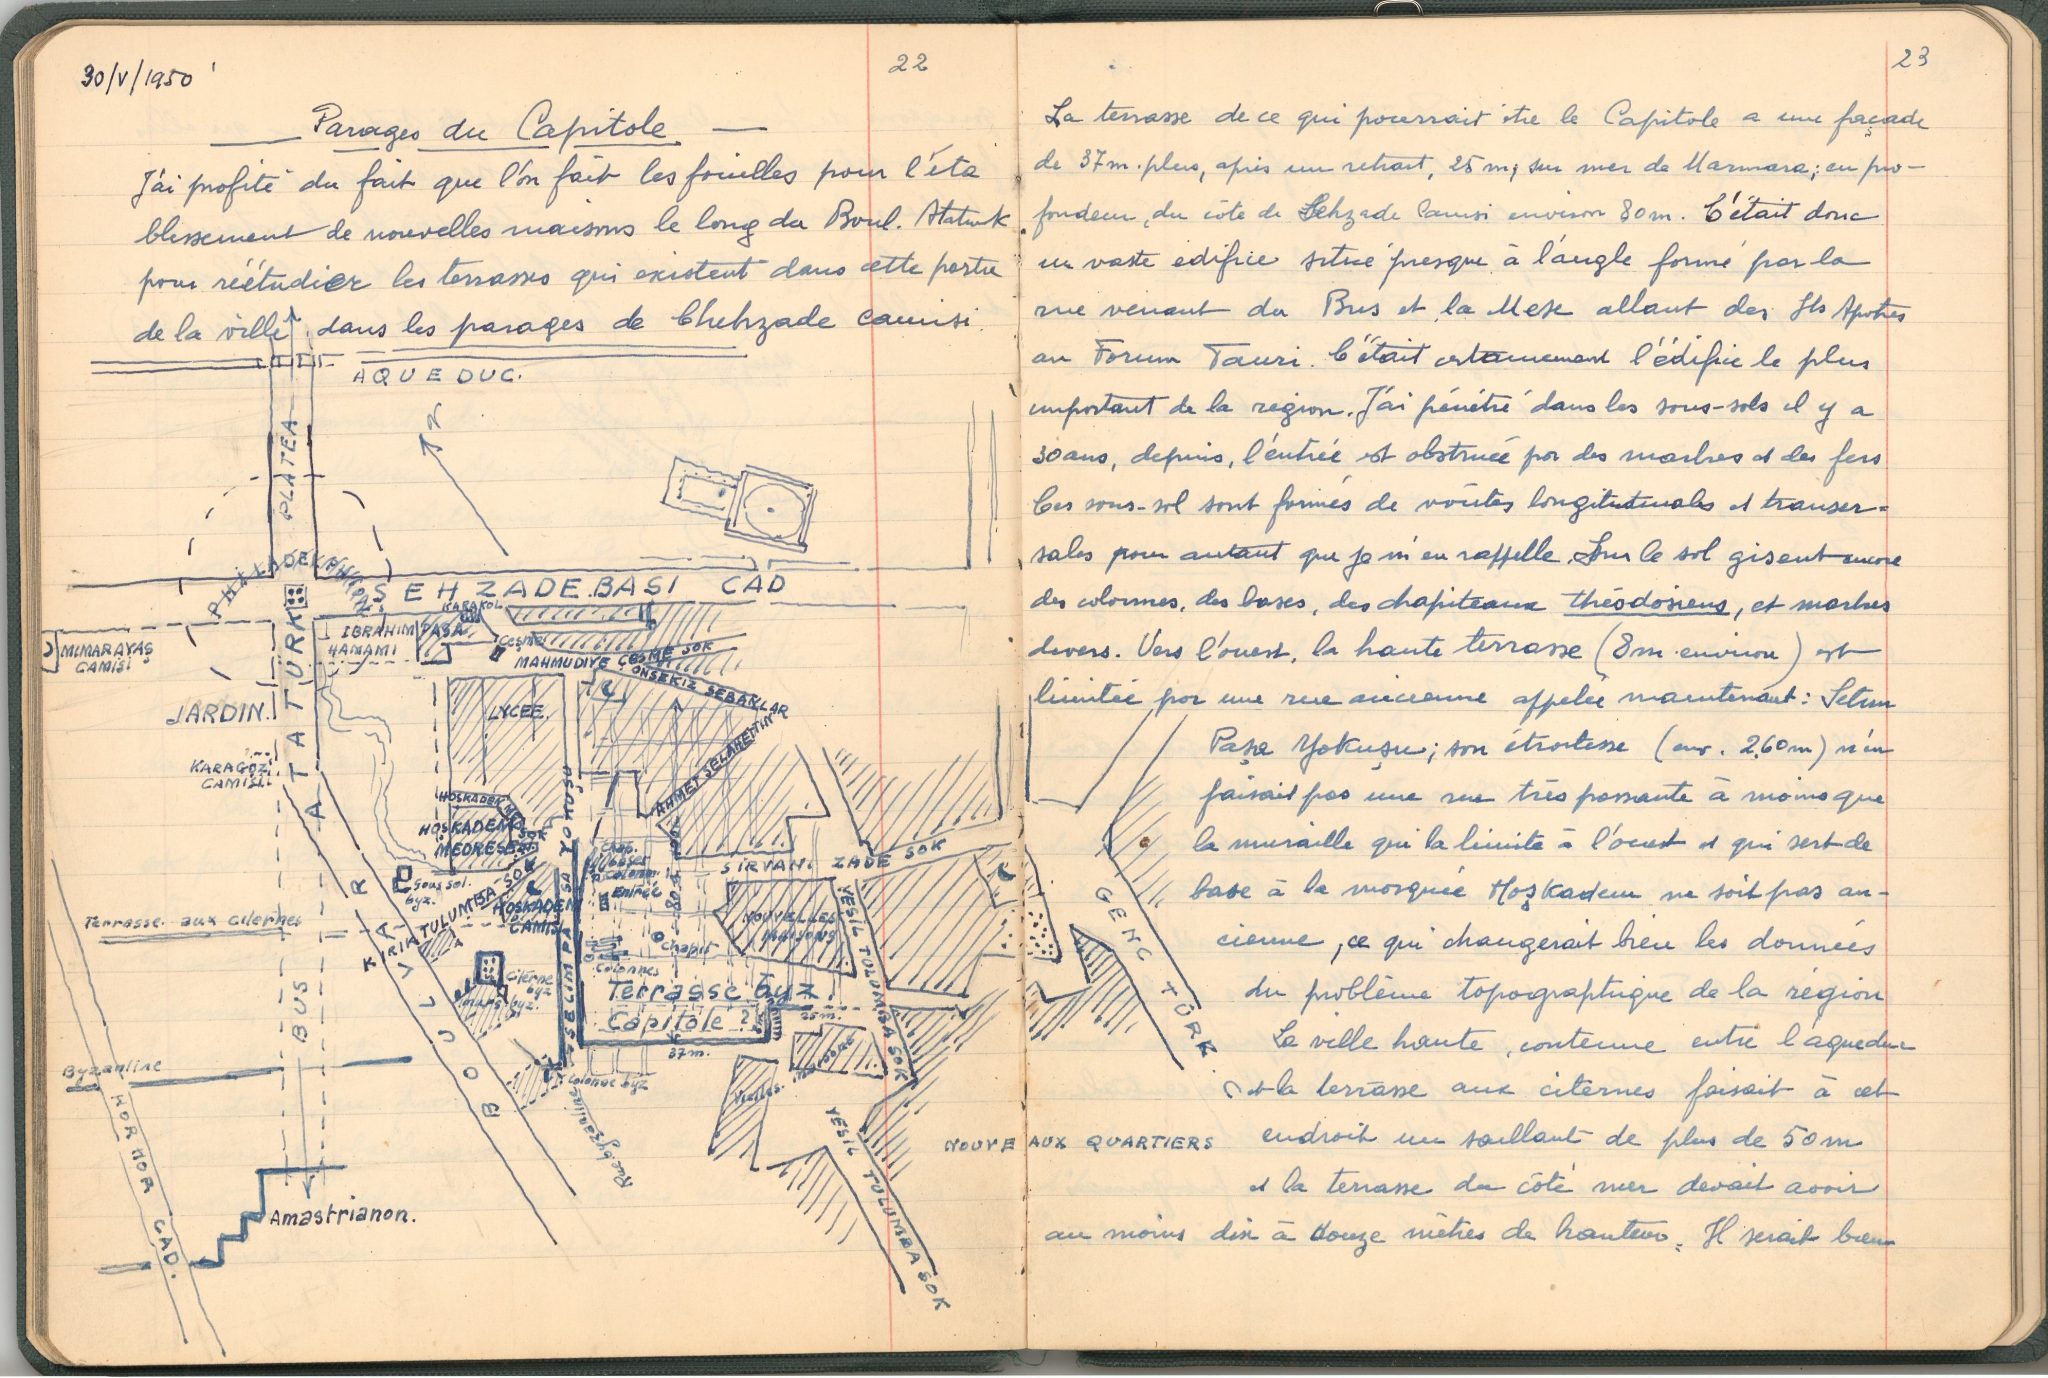 30/V/1950
22
Parages du Capitole
J'ai profité du fait que l'on fait les fouilles pour l'éta
blissement de nouvelles maisons le long du Boul. Ataturk
pour réétudier les terrasses qui existent dans cette partie
de la ville, dans les parages de Chehzade camisi.
AQUEDUC.
N
PLATEA
PHILADELPHION
SEHZADEBASI CAD
KARAKOL
IBRAHIM PASA
HAMAMI
Çeşme
MAHMUDIYE ÇESME SOK
ONSEKIZ SEBANLAR
MIMARAYAS
CAMİSİ
ATATURK
JARDIN.
LYCEE.
AHMET SELAHETTIN
KARAGOZ
CAMISLI
HOSKADEM
SOK
HOSKADEM
MEDRESE
SELIM PASA YOKUŞU
Chap.
Colonn.
Entrée
80 m.
SIRVANI ZADE SOK
Sous sol.
byz.
KIRIK TULUMBA SOK
HOSKADEM
CAMİSİ
NOUVELLES
MAISONS
YESIL TULUMBA SOK
GENC TÜRK
Terrasse aux citernes
Chapit
Colonnes
Citerne
byz
murs byz.
Terrasse byz.
Capitole?
25 m.
37 m.
BUS
BOULVAR
Byzantine
Colonne byz
Rue byzantine
Vieilles
HORHOR CAD.
YESIL TULUMBA SOK
NOUVEAUX QUARTIERS
Amastrianon.
23
La terrasse de ce qui pourrait être le Capitole a une façade
de 37m. plus, après un retrait, 25 m; sur mer de Marmara; en pro-
fondeur, du côté de Sehzade Camisi environ 80m. C'était donc
un vaste édifice situé presque à l'angle formé par la
rue venant du Bus et la Mese allant des Sts Apotres
au Forum Tauri. C'était certainement l'édifice le plus
important de la région. J'ai pénétré dans les sous-sols il y a
30 ans, depuis, l'entrée est obstruée par des marbres et des fers
Ces sous-sol sont formés de voûtes longitudinales et transer-
sales pour autant que je m'en rappelle. Sur le sol gisent encore
des colonnes, des bases, des chapiteaux théodosiens, et marbres
divers. Vers l'ouest, la haute terrasse (8m environ) est
limitée par une rue ancienne appelée maintenant: Selim
Paşa Yokuşu; son étroitesse (env. 2,60m) n'en
faisait pas une rue très passante à moins que
la muraille qui la limite à l'ouest et qui sert de
base à la mosquée Hoşkadem ne soit pas an-
cienne, ce qui changerait bien les données
du problème topographique de la région
La ville haute, contenue entre l'aqueduc
et la terrasse aux citernes faisait à cet
endroit un saillant de plus de 50m
et la terrasse du côté mer devait avoir
au moins dix à douze mètres de hauteur. Il serait bien